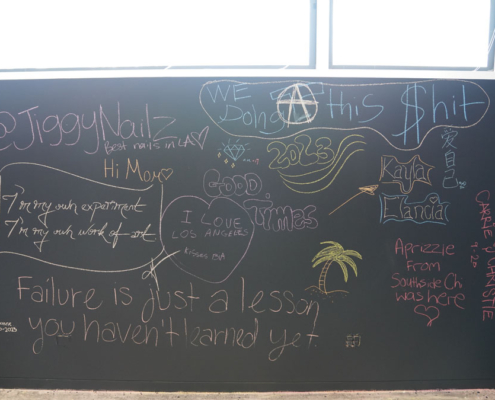 @JiggyNailz
Best nails in LA
Hi Mom
I'm my own experiment
I'm my own work of art
I LOVE
LOS ANGELES
KISSES
WE
Doing this $hit
2023
GOOD
Times
愛自己
Aprizzie
From
Southside Chi
was here
Failure is just a lesson
you haven't learned yet.